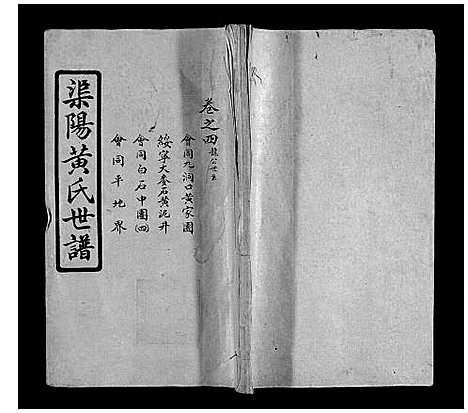 卷之四
會同九洞口黃家園
綏寧大叅石黃泥井
會同白石中團(四)
會同平地界
渠陽黃氏世譜